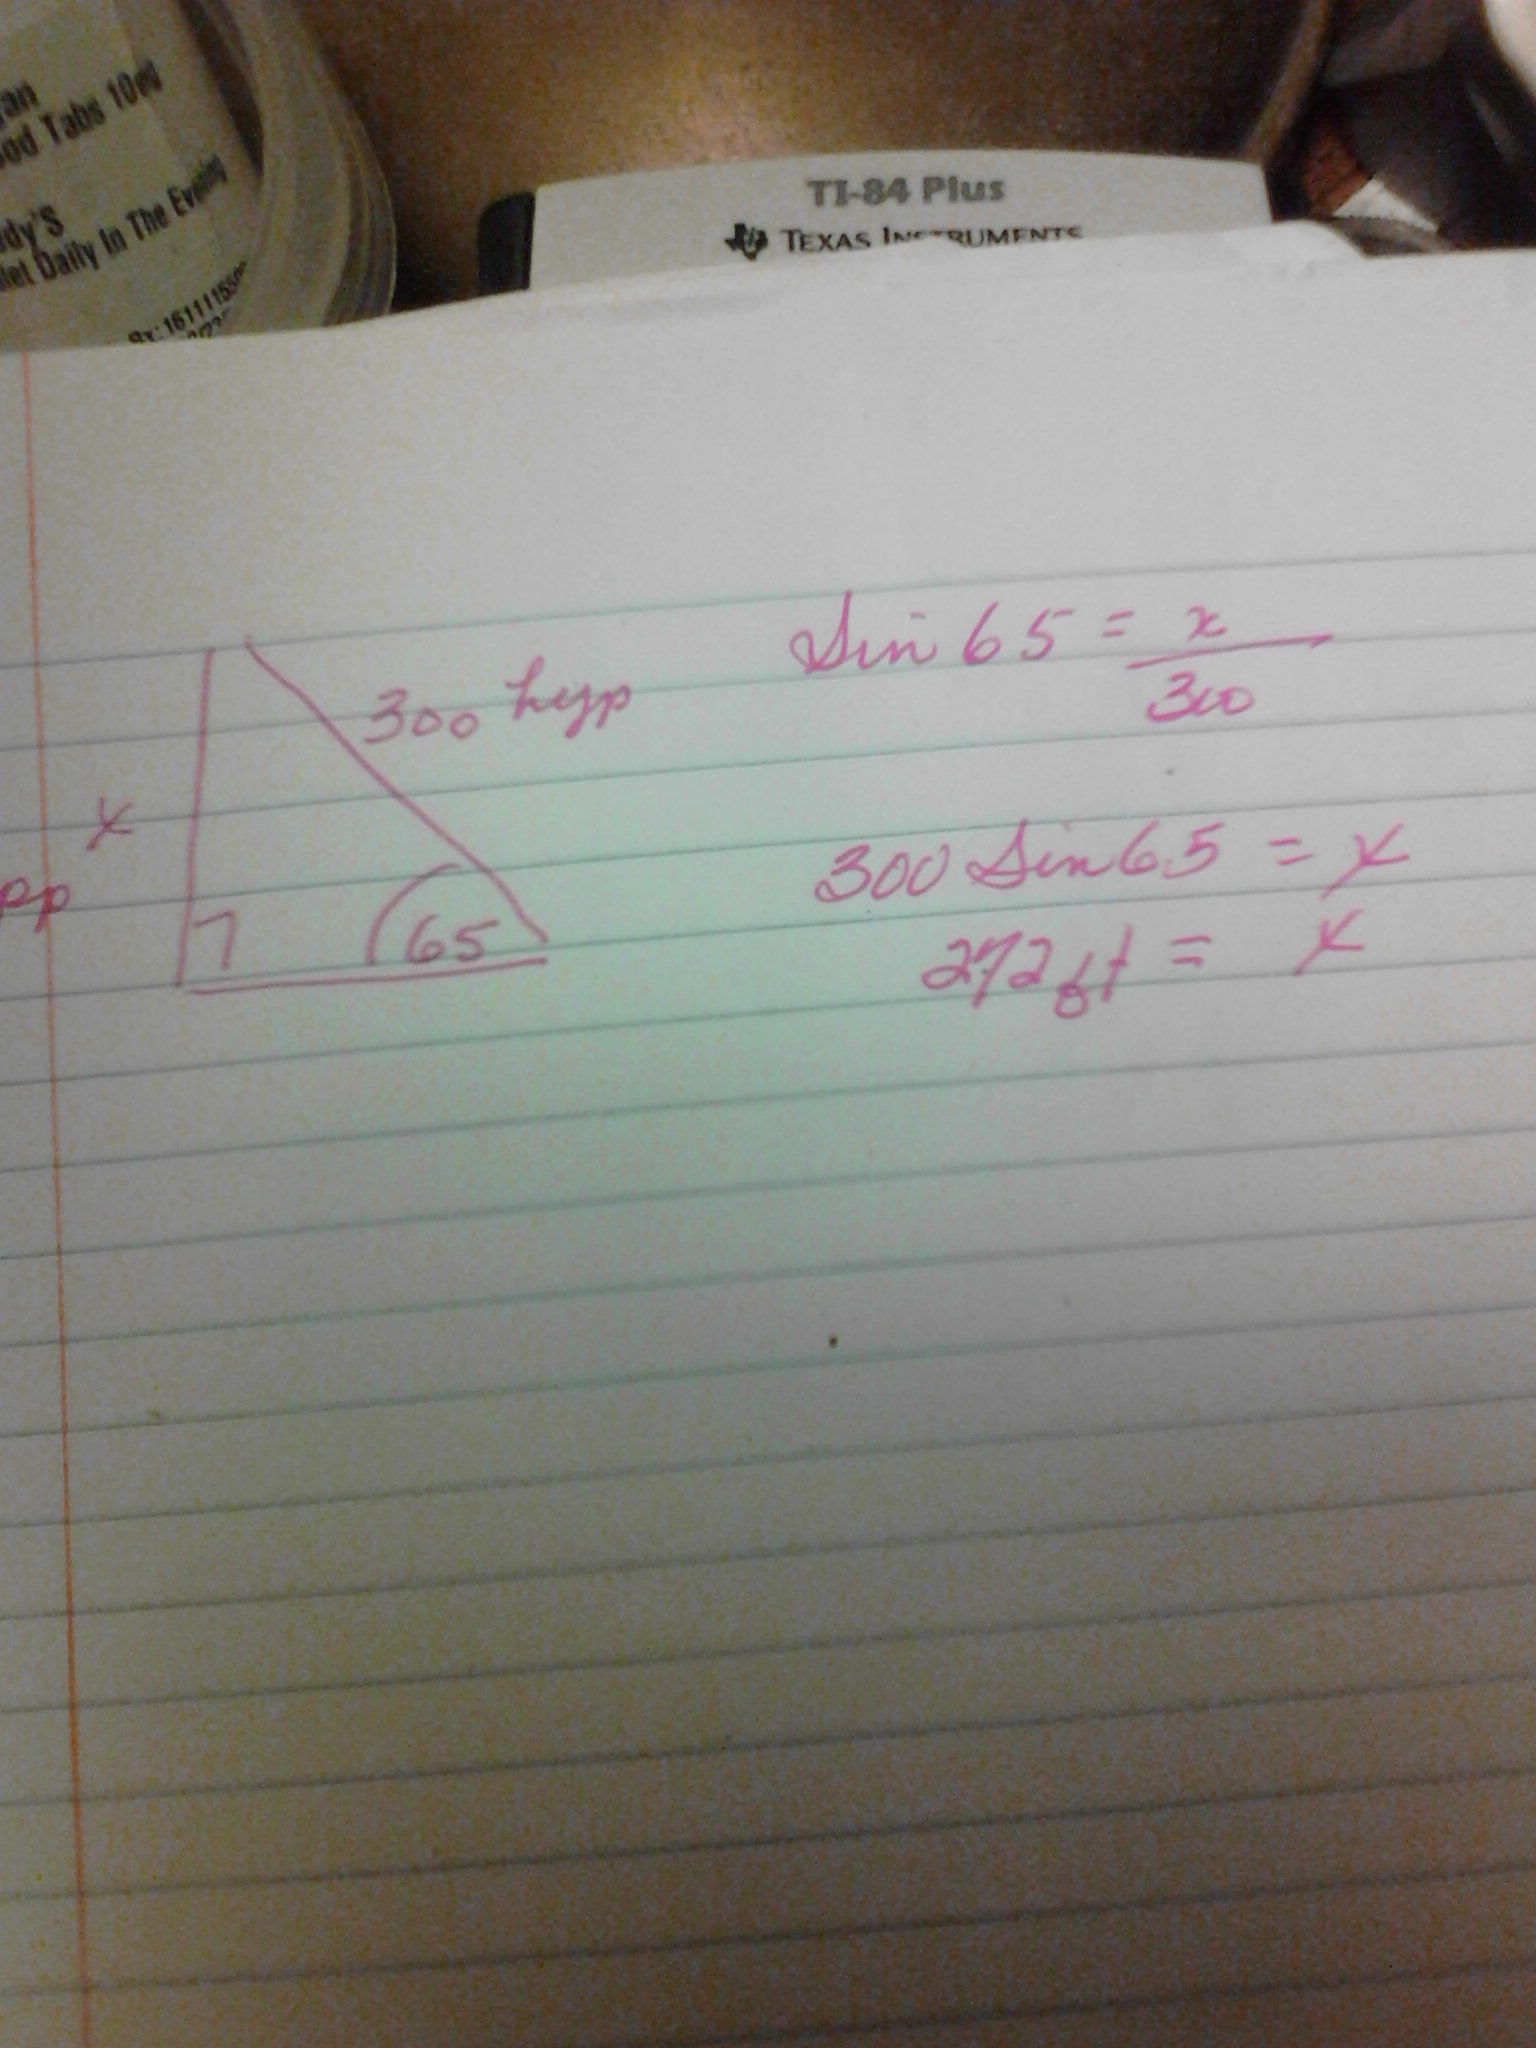 an
ood Tabs 10
dy'S
let Daily In The Evening
Rx: 1611115
TI-84 Plus
TEXAS INSTRUMENTS
Sin 65 = x
300
300 hyp
x
pp
65
300 Sin 65 = x
272 ft = x